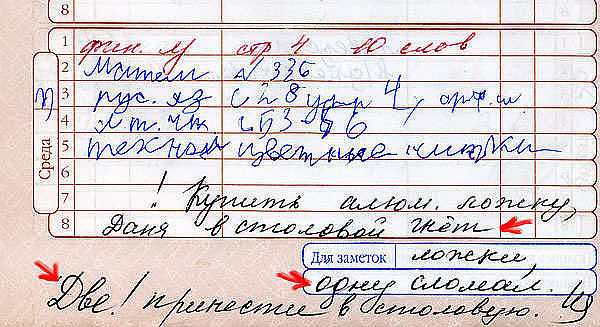 8
1 фин. у стр 4 10 слов
2 Матем N 336
3 рус. яз упр 4,
4 Лит. чт
5 технол цветные
6
7 ! Купить алюм. ложку,
8 Даня в столовой гнёт
Среда
Для заметок ложки,
одну сломал.
Две! принести в столовую.